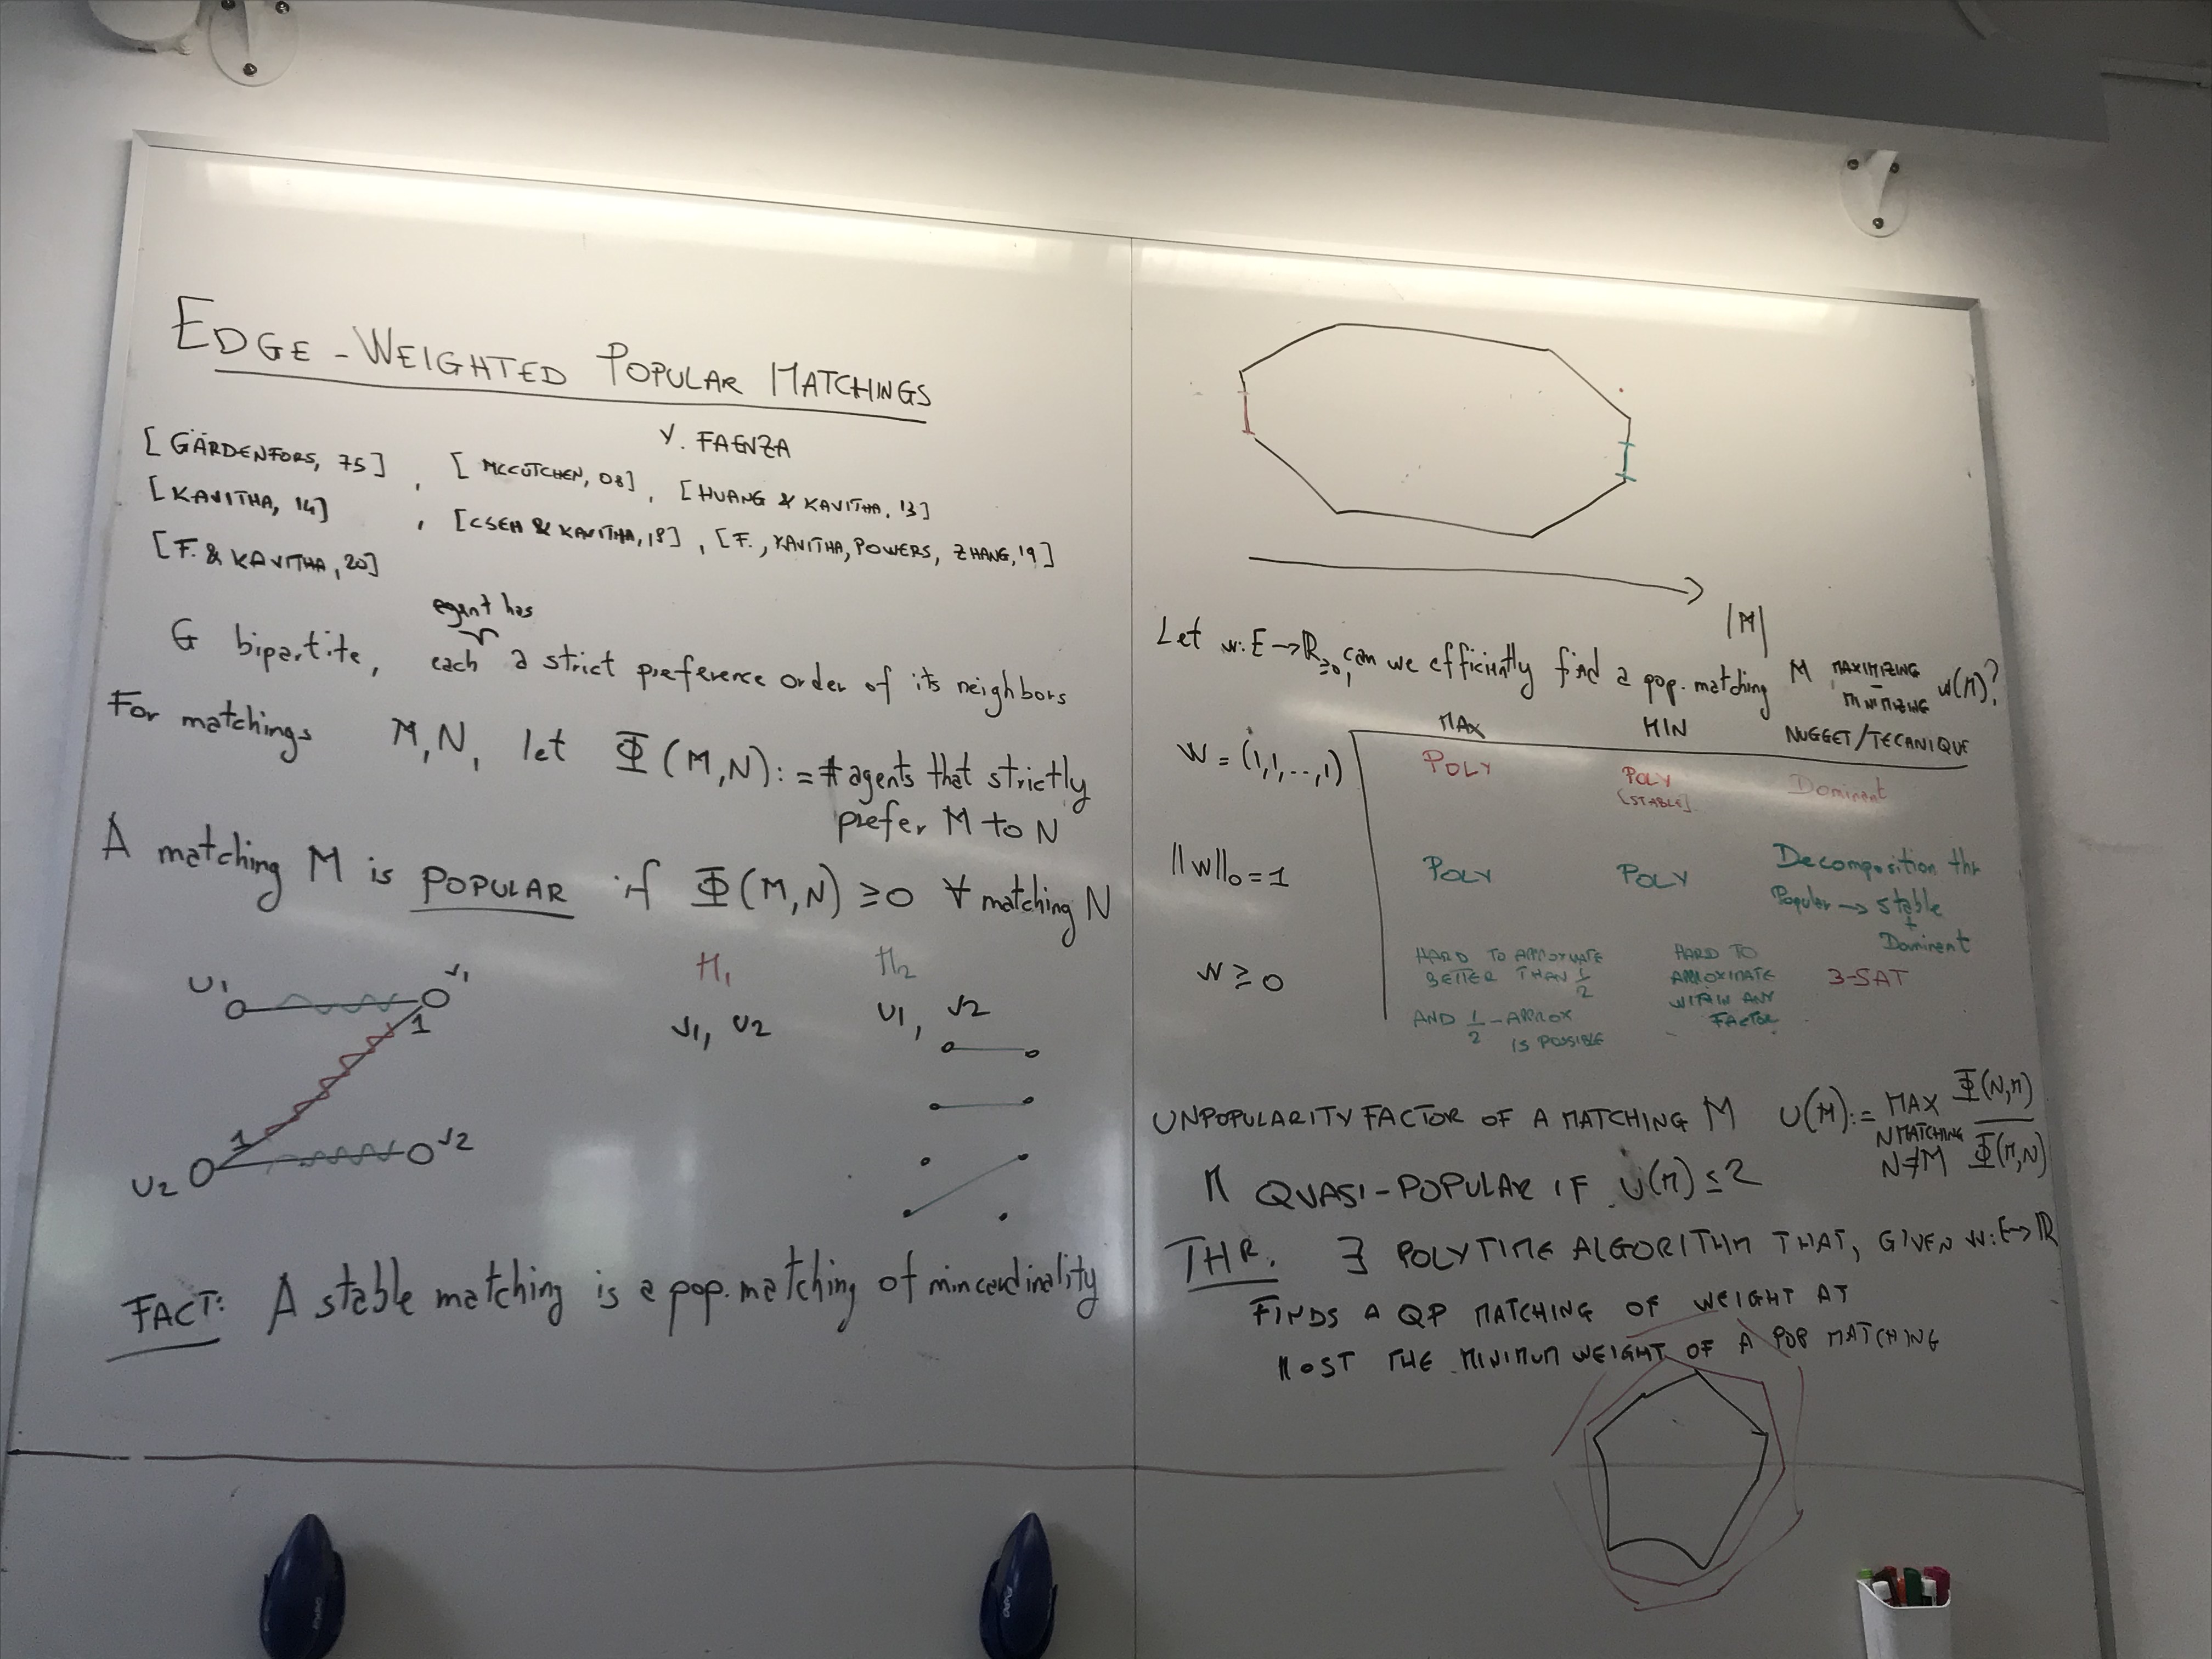 EDGE-WEIGHTED POPULAR MATCHINGS
Y. FAENZA
[GÄRDENFORS, 75], [MCCUTCHEN, 08], [HUANG & KAVITHA, 13]
[KAVITHA, 14], [CSEH & KAVITHA, 18], [F., KAVITHA, POWERS, ZHANG, 19]
[F. & KAVITHA, 20]
agent has
G bipartite, each a strict preference order of its neighbors
For matchings M, N, let Φ(M,N) := # agents that strictly
prefer M to N
A matching M is POPULAR if Φ(M,N) ≥ 0 ∀ matching N
U1
V1
1
1
U2
V2
M1
V1, U2
M2
U1, V2
FACT: A stable matching is a pop. matching of min cardinality
|M|
Let w: E → R≥0, can we efficiently find a pop. matching M MAXIMIZING w(M)?
MINIMIZING
MAX MIN NUGGET/TECANIQUE
W = (1,1,...,1) POLY POLY Dominant
[STABLE]
||w||0 = 1 POLY POLY Decomposition thr
Popular → stable
+
Dominent
W ≥ 0
HARD TO APPROXIMATE
BETTER THAN 1/2
AND 1/2-APPROX
IS POSSIBLE
HARD TO
APPROXIMATE
WITHIN ANY
FACTOR
3-SAT
UNPOPULARITY FACTOR OF A MATCHING M U(M) := MAX Φ(N,M)/Φ(M,N)
N MATCHING
N≠M
M QUASI-POPULAR IF U(M) ≤ 2
THR. ∃ POLYTIME ALGORITHM THAT, GIVEN W: E→R
FINDS A QP MATCHING OF WEIGHT AT
MOST THE MINIMUM WEIGHT OF A POP MATCHING